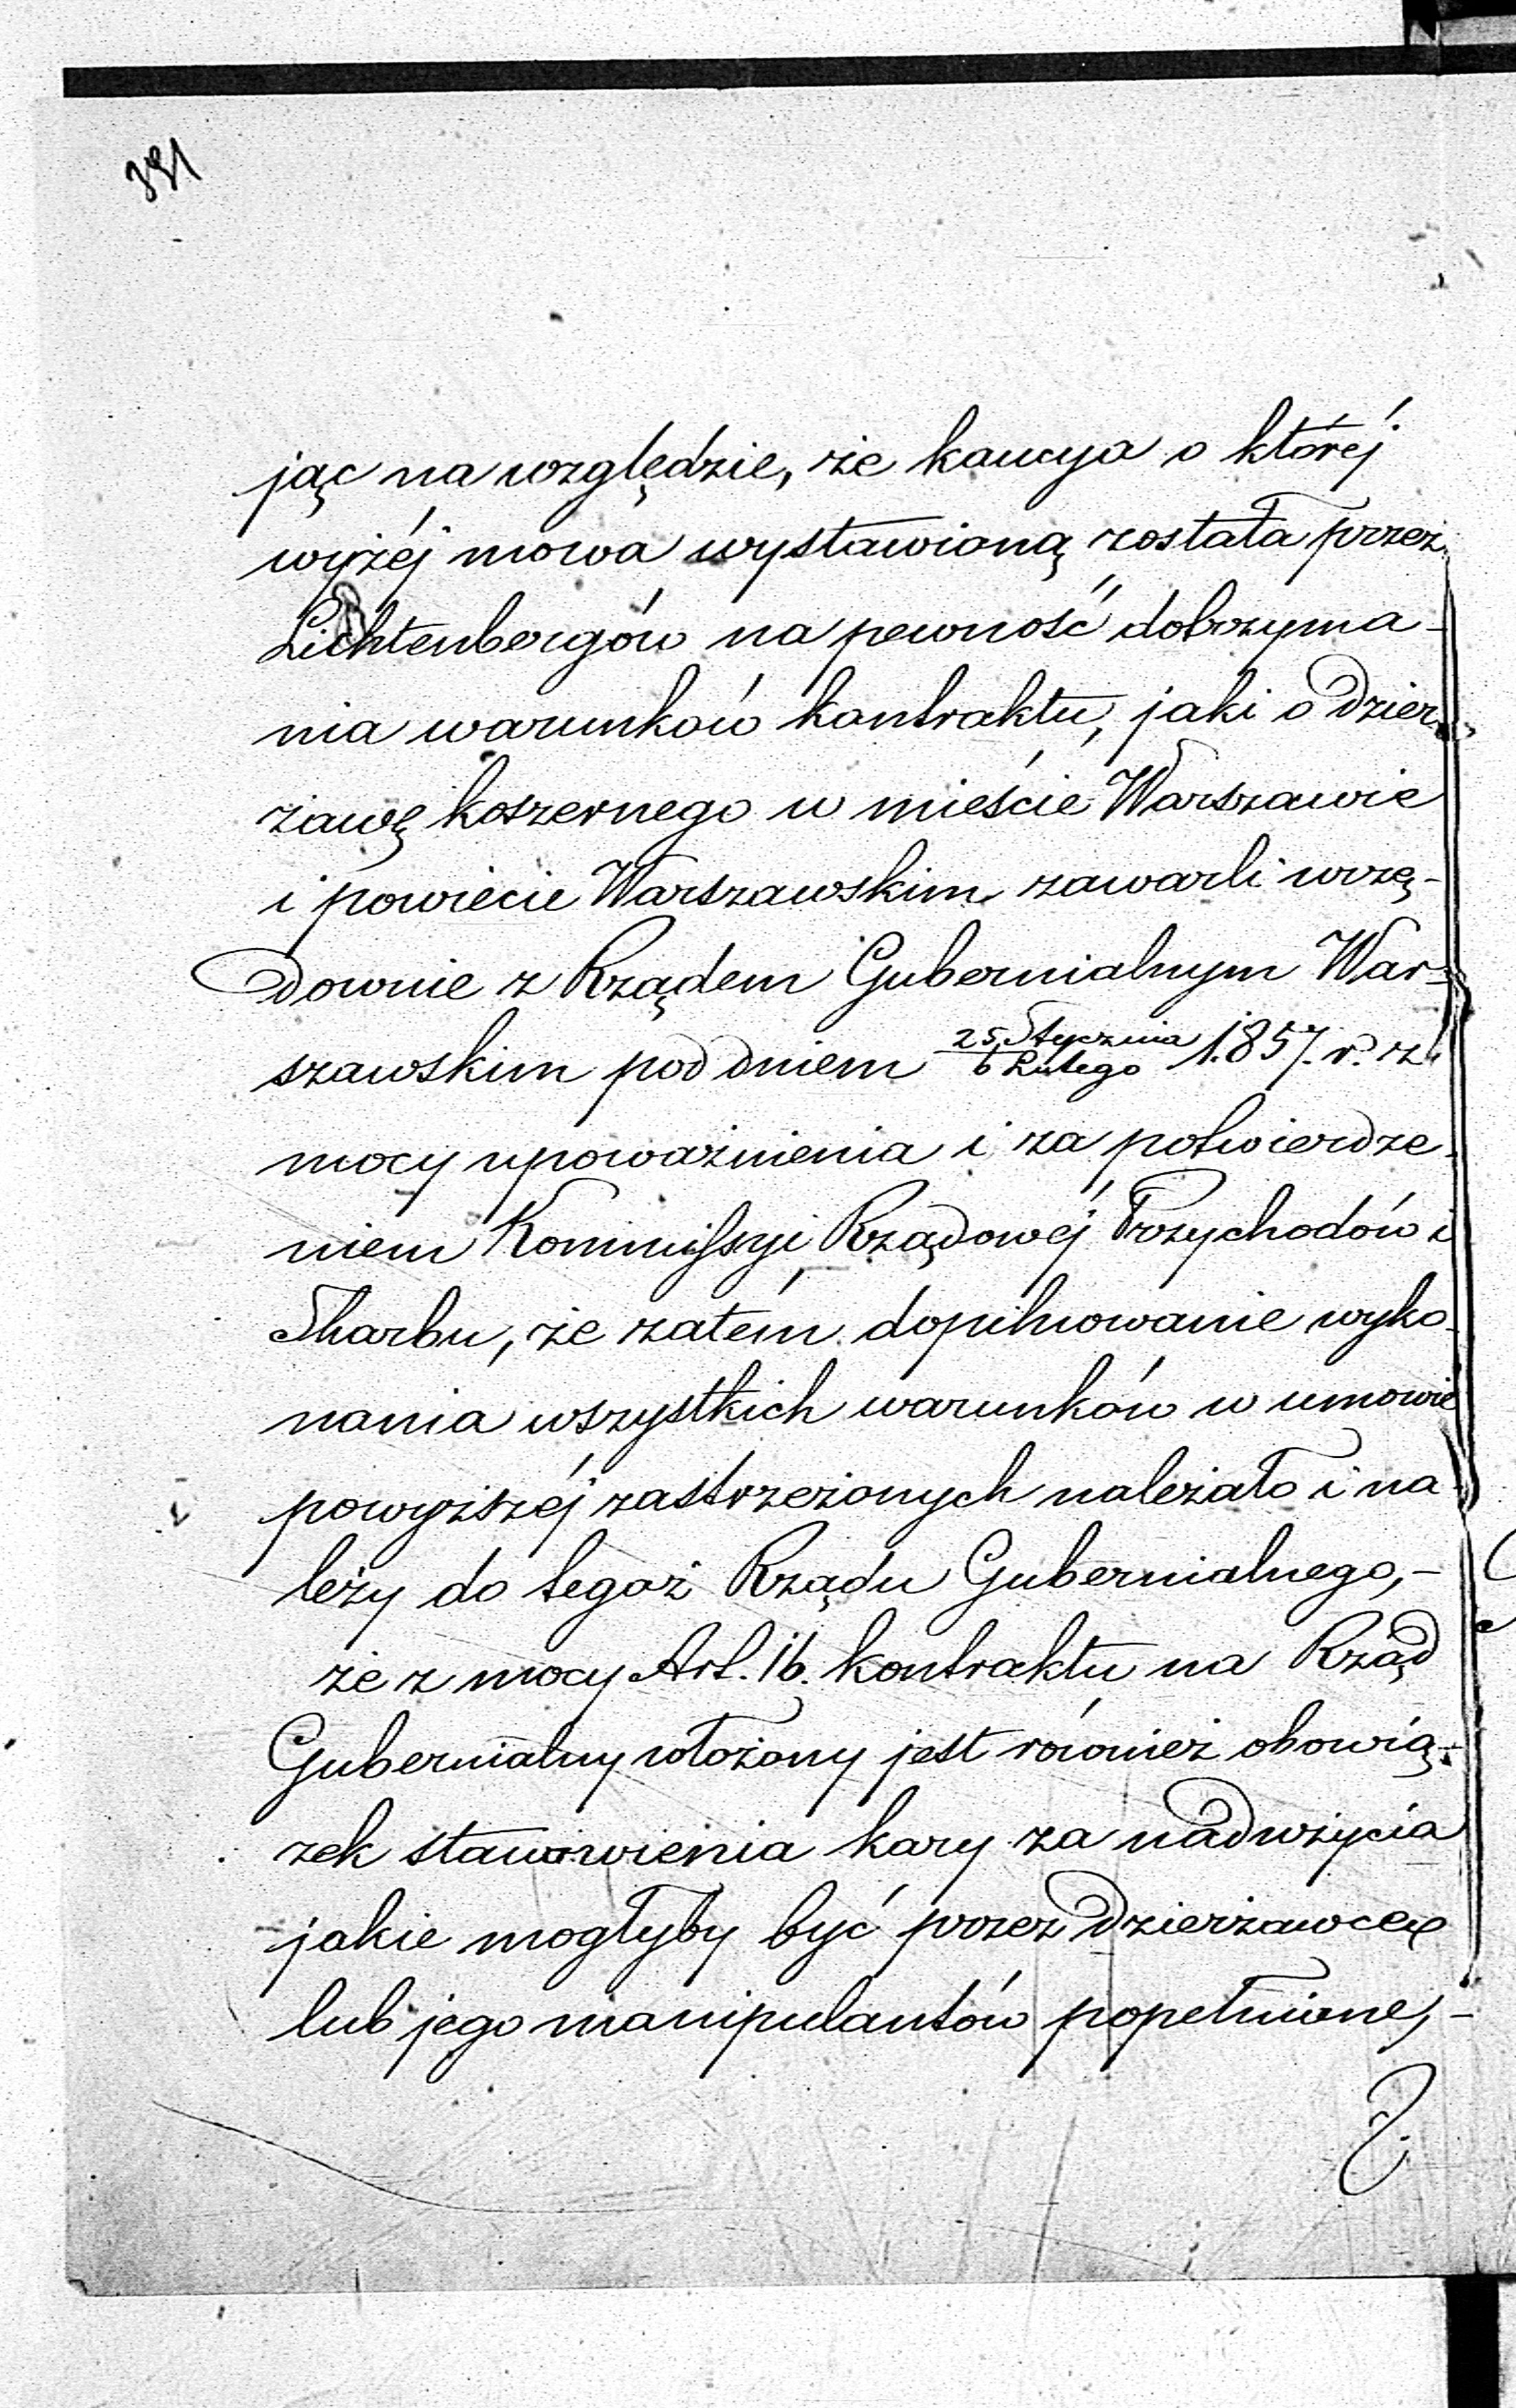 391
jąc na względzie, że kaucya o któréj
wyżéj mowa wystawioną została przez
Lichtenbergów na pewność dotrzyma-
nia warunków kontraktu, jaki o dzier-
żawę koszernego w mieście Warszawie
i powiecie Warszawskim zawarli urzę-
downie z Rządem Gubernialnym War-
szawskim pod dniem 25 Stycznia / 6 Lutego 1857. r. z
mocy upoważnienia i za potwierdze-
niem Kommissyi Rządowéj Przychodów i
Skarbu, że zatém dopilnowanie wyko-
nania wszystkich warunków w umowie
powyższéj zastrzeżonych należało i na-
leży do tegoż Rządu Gubernialnego, -
że z mocy Art. 16. kontraktu na Rząd
Gubernialny włożony jest również obowią-
zek stanowienia kary za nadużycia
jakie mogłyby być przez dzierżawcę
lub jego manipulantów popełnione, -